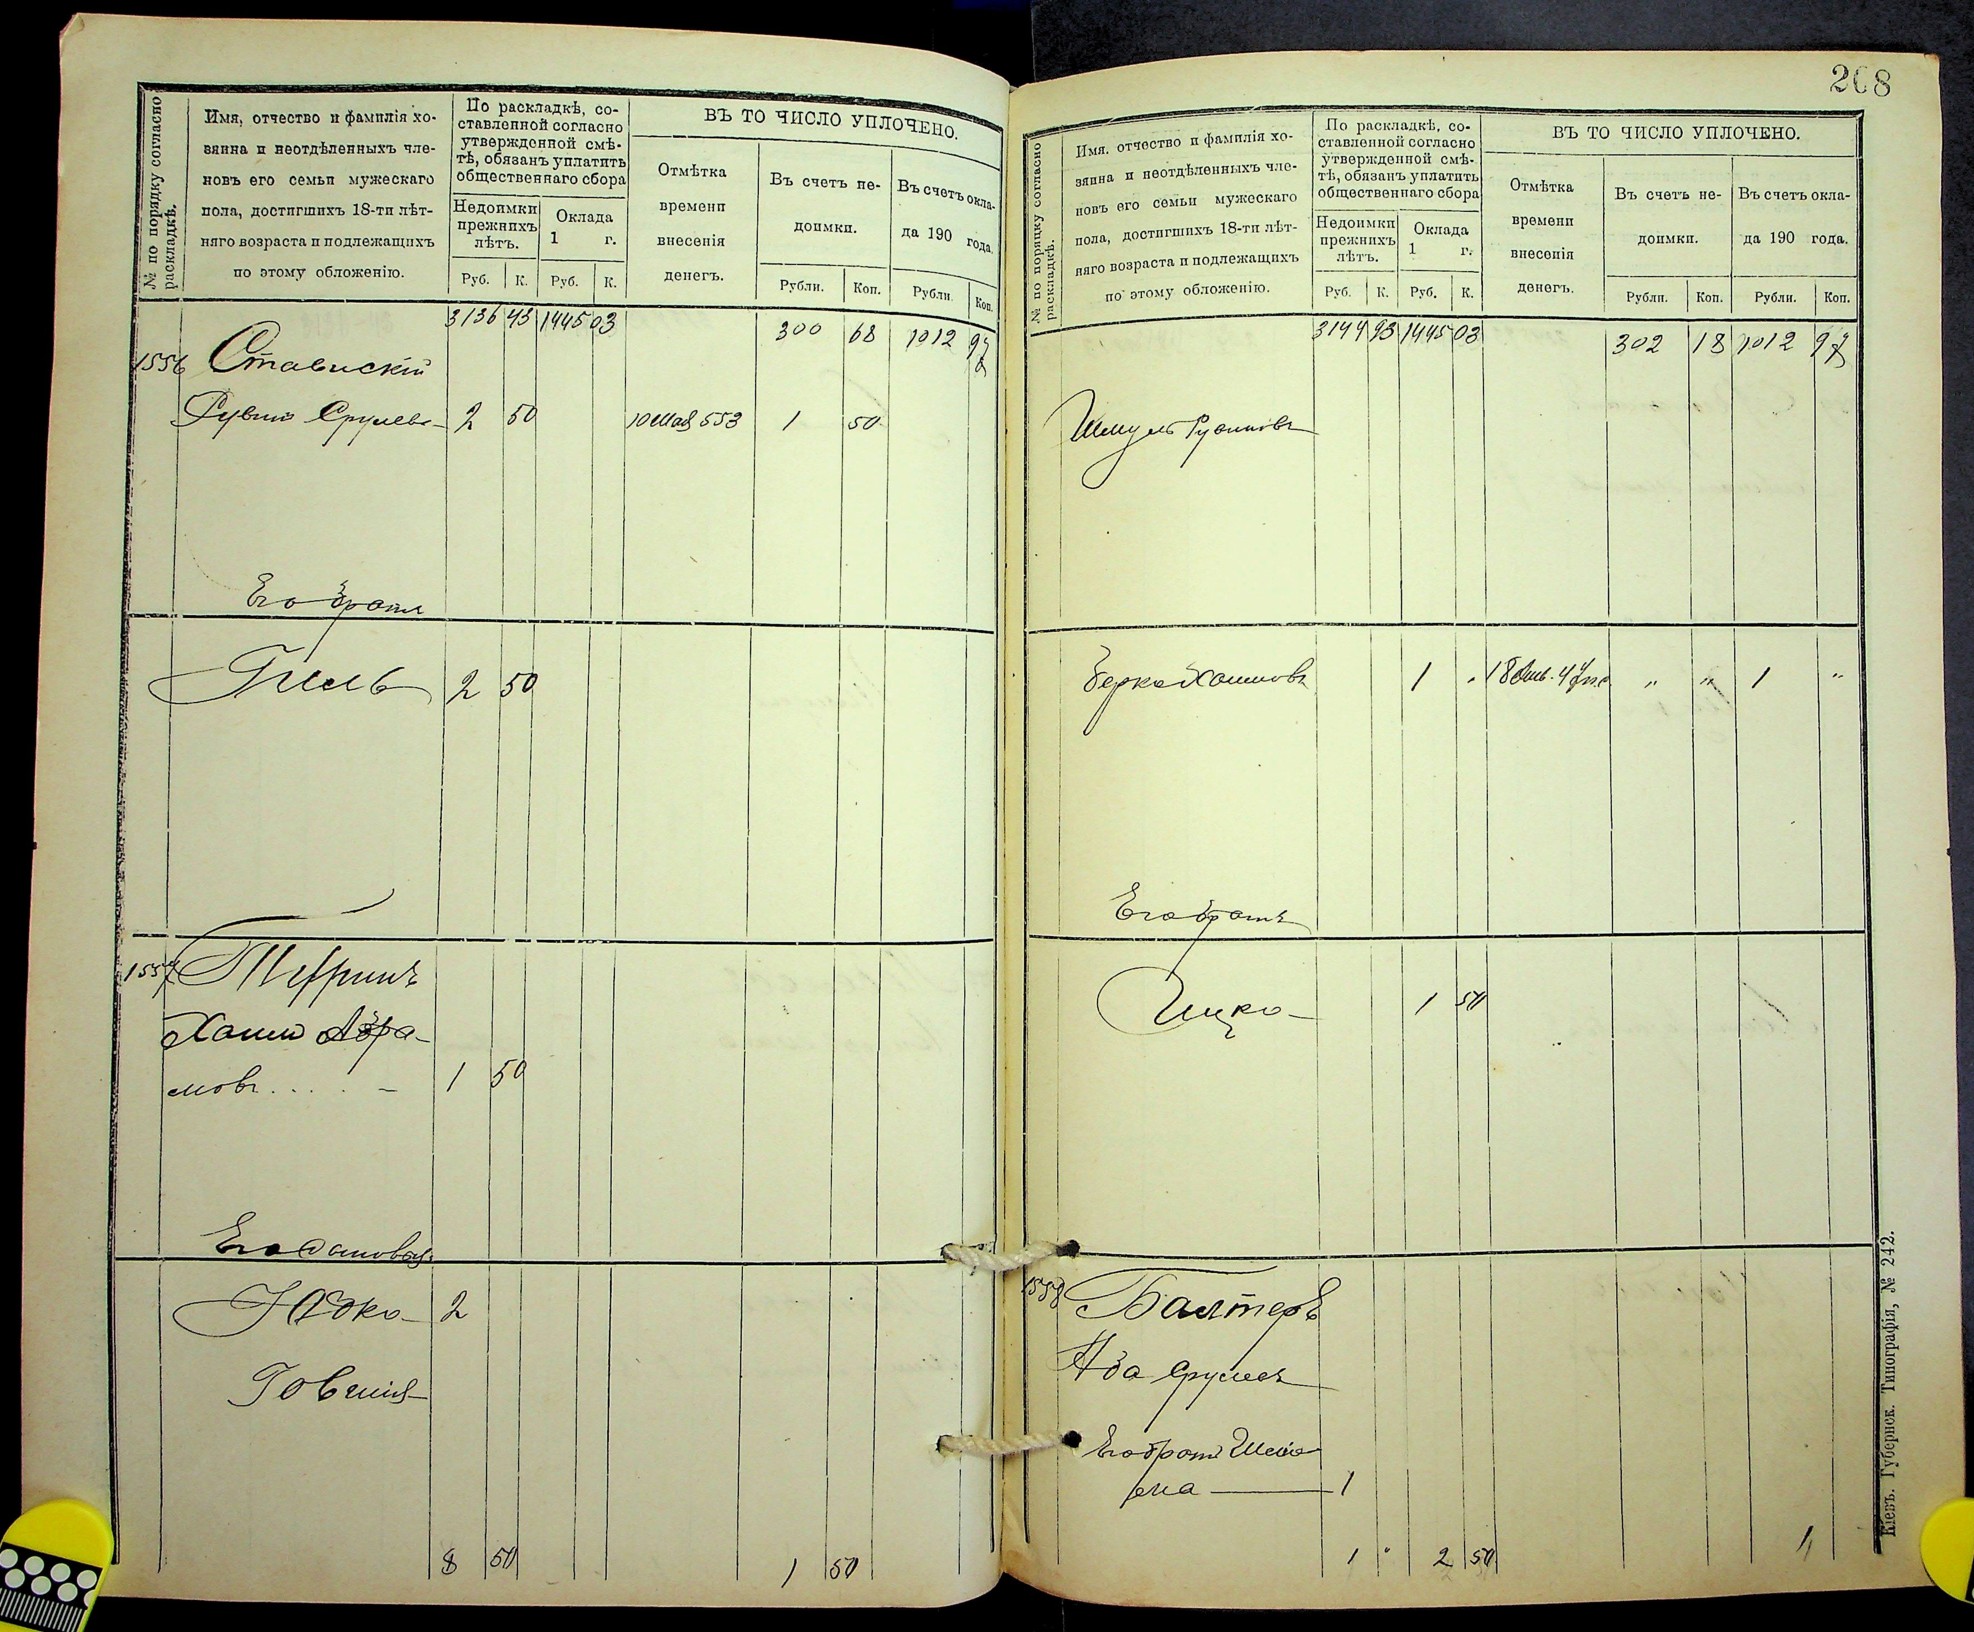 № по порядку согласно раскладкѣ.
Имя, отчество и фамилія хо-
зяина и неотдѣленныхъ чле-
новъ его семьи мужескаго
пола, достигшихъ 18-ти лѣт-
няго возраста и подлежащихъ
по этому обложенію.
По раскладкѣ, со-
ставленной согласно
утвержденной смѣ-
тѣ, обязанъ уплатить
общественнаго сбора
Недоимки
прежнихъ
лѣтъ.
Оклада
1 г.
Руб. К. Руб. К.
ВЪ ТО ЧИСЛО УПЛОЧЕНО.
Отмѣтка
времени
внесенія
денегъ.
Въ счетъ не-
доимки.
Въ счетъ окла-
да 190 года.
Рубли. Коп. Рубли. Коп.
3136 43 1445 03 300 68 1012 97
1556 Ставискій
Рувин Срулевъ 2 50 10 Мая 553 1 50
Его братъ
Гиль 2 50
1557
Хаим Абра-
мовъ 1 50
Его сыновья
Юдко 2
Говшия
8 50 1 50
208
№ по порядку согласно раскладкѣ.
Имя, отчество и фамилія хо-
зяина и неотдѣленныхъ чле-
новъ его семьи мужескаго
пола, достигшихъ 18-ти лѣт-
няго возраста и подлежащихъ
по этому обложенію.
По раскладкѣ, со-
ставленной согласно
утвержденной смѣ-
тѣ, обязанъ уплатить
общественнаго сбора
Недоимки
прежнихъ
лѣтъ.
Оклада
1 г.
Руб. К. Руб. К.
ВЪ ТО ЧИСЛО УПЛОЧЕНО.
Отмѣтка
времени
внесенія
денегъ.
Въ счетъ не-
доимки.
Въ счетъ окла-
да 190 года.
Рубли. Коп. Рубли. Коп.
3144 93 1445 03 302 18 1012 97
Шмуль Рувиновъ
Берко Хаимовъ 1 " " " 1 "
Его братъ
Ицко 1 50
1558 Балтеръ
Аба Срулев
Его братъ Шело
ма 1
1 " 2 50 1
Кіевъ. Губернск. Типографія, № 242.